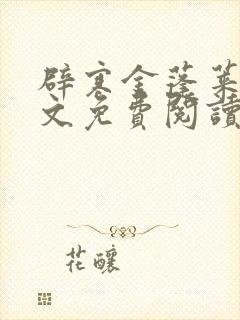 辟寒金蓬萊
文免費閱讀
花釀